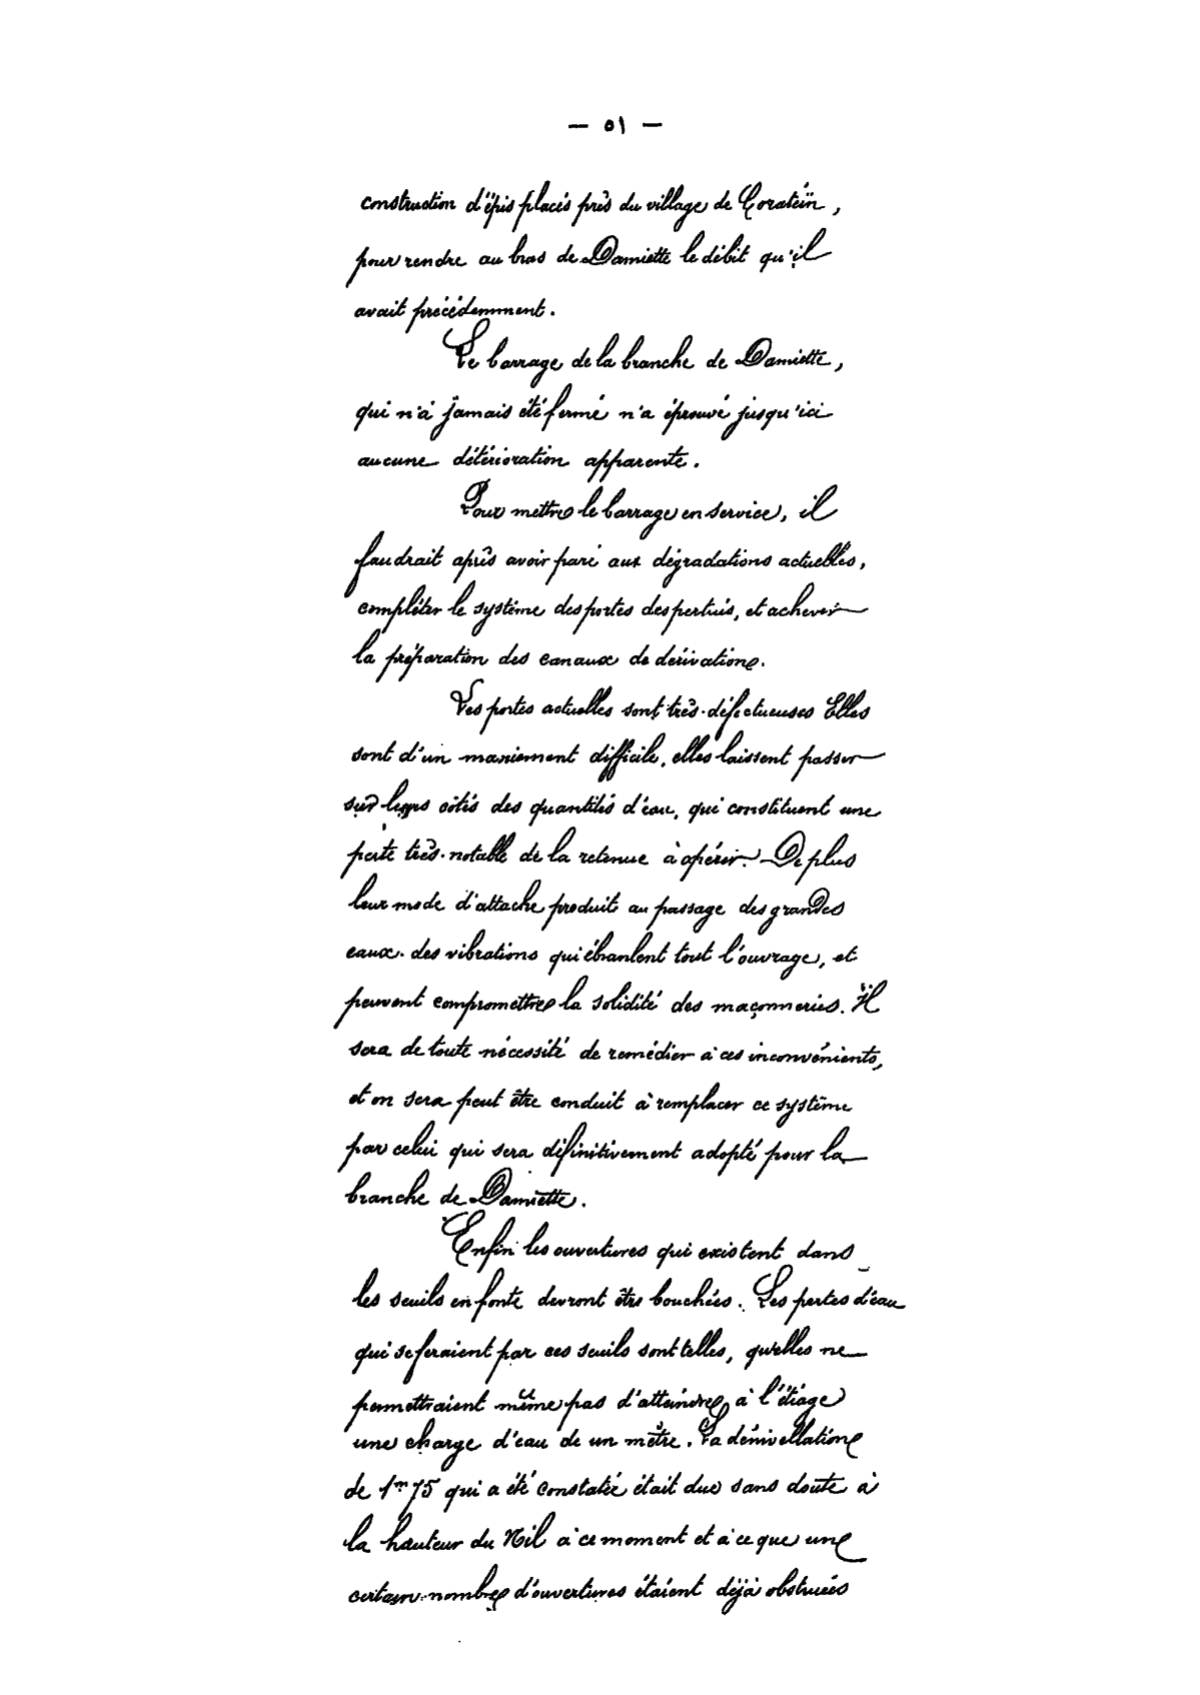 — ٥١ —
construction d'épis placés près du village de Coratéïn,
pour rendre au bras de Damiette le débit qu'il
avait précédemment.
Le barrage de la branche de Damiette,
qui n'a jamais été fermé n'a éprouvé jusqu'ici
aucune détérioration apparente.
Pour mettre le barrage en service, il
faudrait après avoir paré aux dégradations actuelles,
compléter le système des portes des pertuis, et achever
la préparation des canaux de dérivation.
Les portes actuelles sont très-défectueuses Elles
sont d'un maniement difficile, elles laissent passer
sur leurs côtés des quantités d'eau, qui constituent une
perte très-notable de la retenue à opérer. De plus
leur mode d'attache produit au passage des grandes
eaux des vibrations qui ébranlent tout l'ouvrage, et
peuvent compromettre la solidité des maçonneries. Il
sera de toute nécessité de remédier à ces inconvénients,
et on sera peut être conduit à remplacer ce système
par celui qui sera définitivement adopté pour la
branche de Damiette.
Enfin les ouvertures qui existent dans
les seuils en fonte devront être bouchées. Les pertes d'eau
qui se feraient par ces seuils sont telles, qu'elles ne
permettraient même pas d'atteindre à l'étiage
une charge d'eau de un mètre. La dénivellation
de 1ᵐ75 qui a été constatée était due sans doute à
la hauteur du Nil à ce moment et à ce que une
certain nombre d'ouvertures étaient déjà obstruées